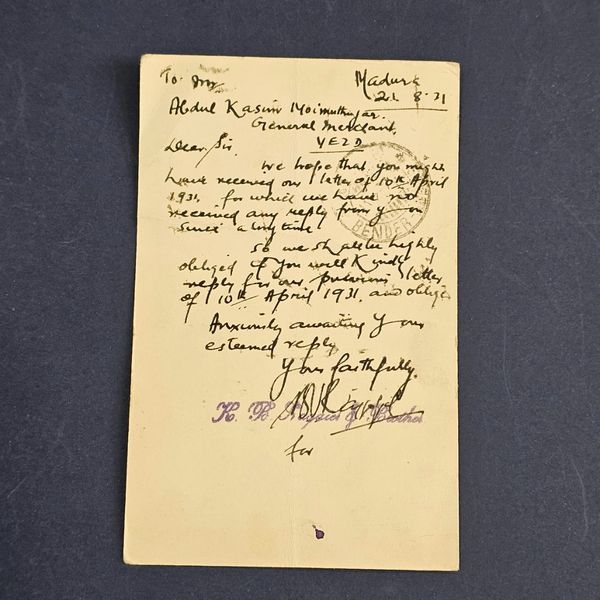 To Mr
Madura
21. 8. 31
Abdul Kasim
General Merchant,
YEZD
Dear Sir.
we hope that you might
have received our letter of 10th April
1931, for which we have no
received any reply from you
since a long time
So we shall be highly
obliged if you will kindly
reply for our previous letter
of 10th April 1931, and oblige
Anxiously awaiting your
esteemed reply
Yours faithfully.
K. B. & Brother
for
BENDER